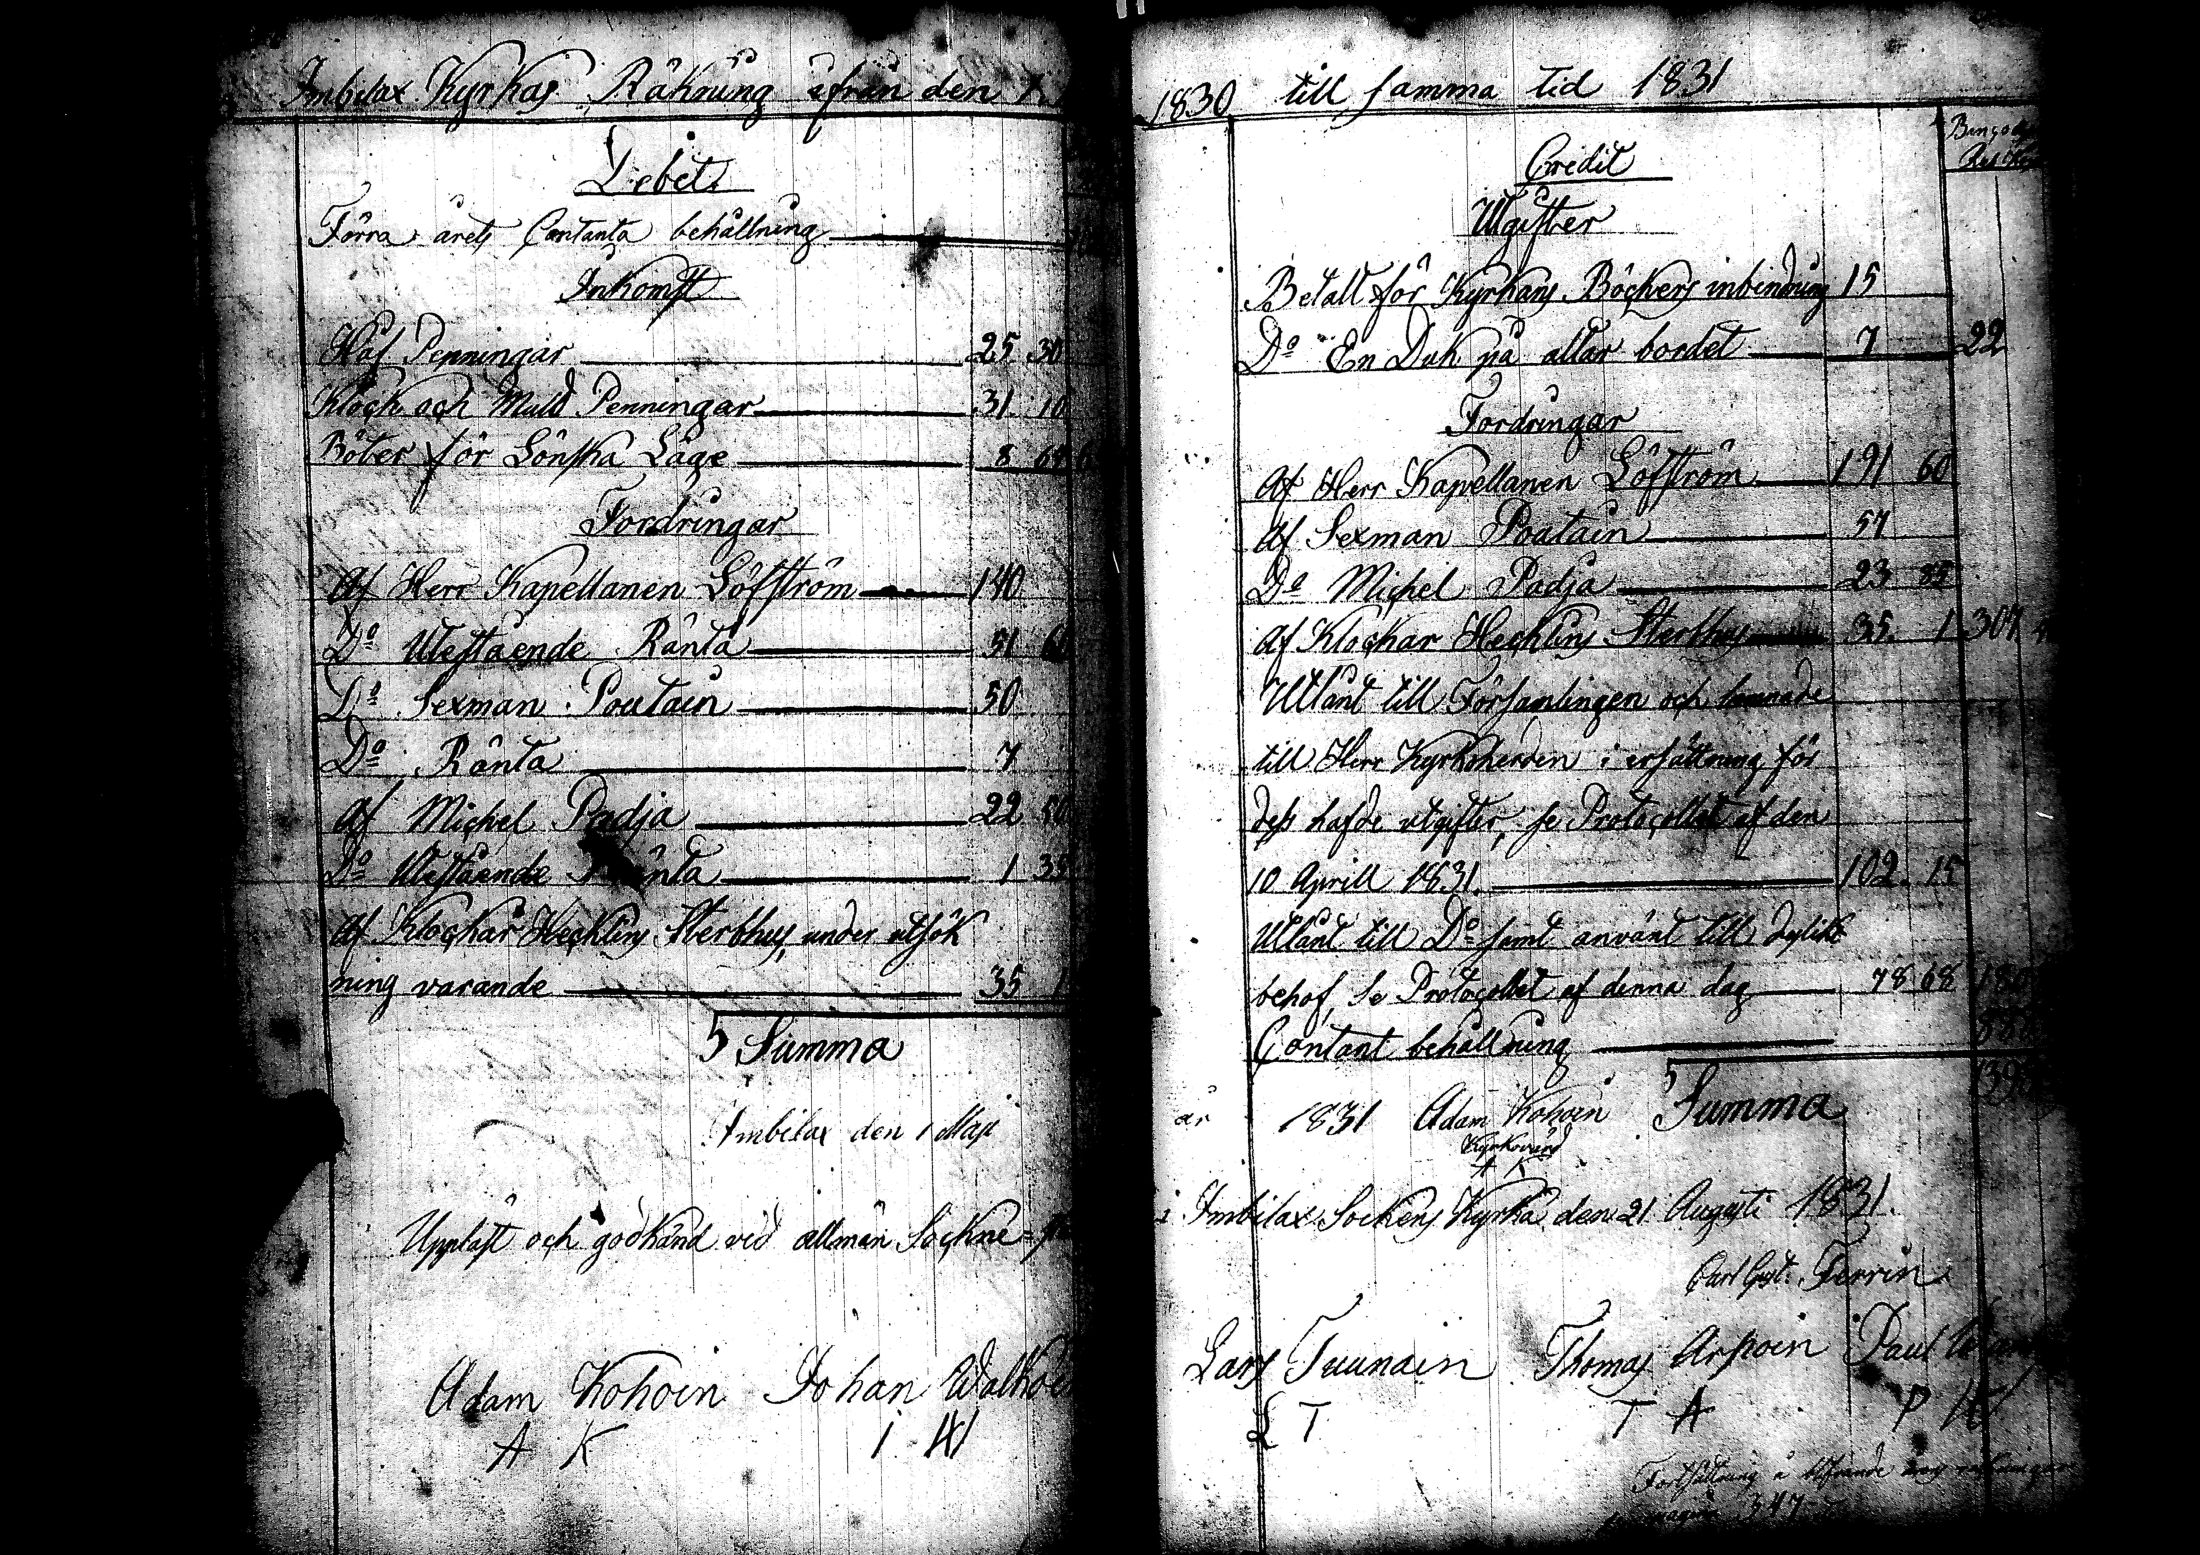 Imbilax Kyrkas Räkning ifrån den 1.
Debet.
Förra årets Contanta behållning
Inkomst
Håf Penningar 25 30
Klock och Mull Penningar 31. 10
Böter för Lönska Läge 8 64
Fordringar
Af Herr Kapellanen Löfström 140
Do Utestående Ränta 51 60
Do Sexman Poutain 50
Do Ränta 7
Af Michel Padja 22 50
Do Utestående Ränta 1 35
Af Klockar Hecklins Sterbhus, under utsök
ning varande 35 1
Summa
Imbilax den 1 Maji
Uppläst och godkänd vid allmän Sockne-
Adam Kohoin Johan
A K I W
1830 till samma tid 1831
Credit
Utgifter
Betalt för Kyrkans Böckers inbindning 15
Do En Duk på altar bordet 7 22
Fordringar
Af Herr Kapellanen Löfström 191 60
Af Sexman Poutain 57
Do Michel Padja 23 85
Af Klockar Hecklins Sterbhus 35. 1 307
Utlånt till Församlingen och lemnade
till Herr Kyrkoherden i ersättning för
dess hafde utgifter, se Protocollet af den
10 Aprill 1831. 102. 15
Utlånt till Do samt använt till dylikt
behof, se Protocollet af denna dag 78 68
Contant behållning
Summa
år 1831 Adam Kohoin
Kyrkovärd
A K
i Imbilax Sockens Kyrka den 21 Augusti 1831.
Carl Gust. Ferrin
Lars Tuunain Thomas Arpoin Paul
L T T A P W
Fortsättning å
347